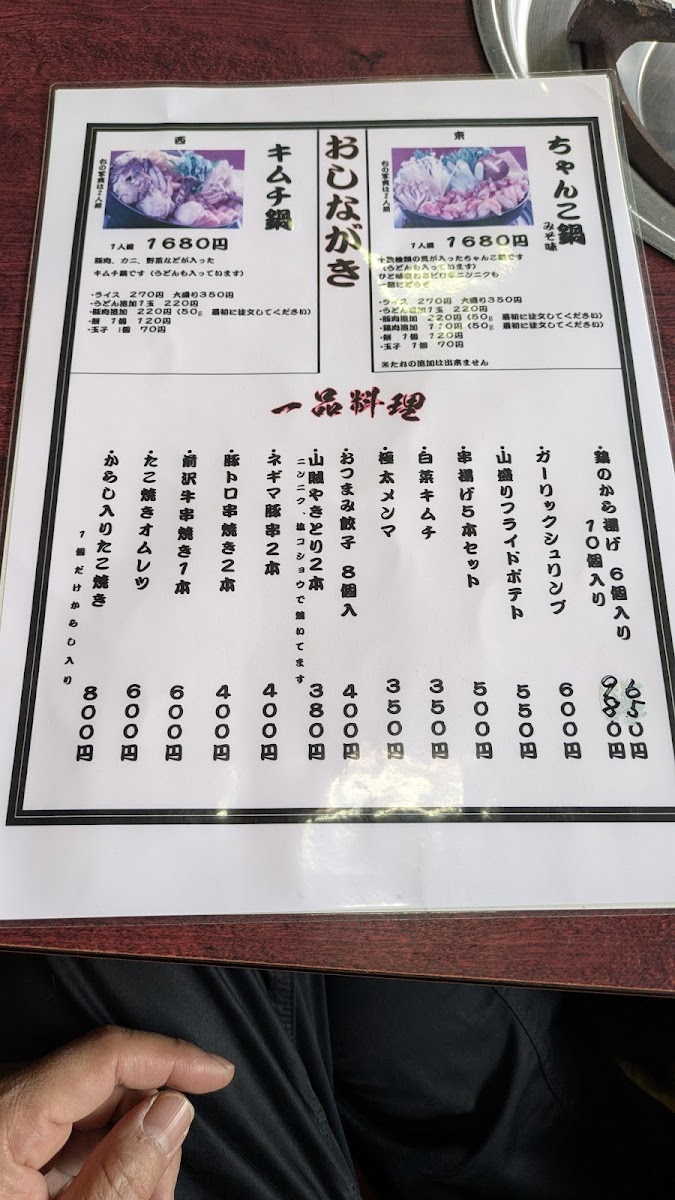 おしながき
東
ちゃんこ鍋
みそ味
右の写真は2人前
1人鍋 1680円
十数種類の具が入ったちゃんこ鍋です
(うどんも入っています)
ひと味変わるピリ辛ニンニクも
一緒にどうぞ
・ライス 270円 大盛り350円
・うどん追加1玉 220円
・豚肉追加 220円(50g 最初に注文してください)
・鶏肉追加 110円(50g 最初に注文してください)
・餅 1個 120円
・玉子 1個 70円
※たれの追加は出来ません
西
キムチ鍋
右の写真は2人前
1人鍋 1680円
豚肉、カニ、野菜などが入った
キムチ鍋です(うどんも入っています)
・ライス 270円 大盛り350円
・うどん追加1玉 220円
・豚肉追加 220円(50g 最初に注文してください)
・餅 1個 120円
・玉子 1個 70円
一品料理
・鶏のから揚げ 6個入り 650円
10個入り 980円
・ガーリックシュリンプ 600円
・山盛りフライドポテト 550円
・串揚げ5本セット 500円
・白菜キムチ 350円
・極太メンマ 350円
・おつまみ餃子 8個入 400円
・山賊やきとり2本 380円
ニンニク、塩コショウで焼いてます
・ネギマ豚串2本 400円
・豚トロ串焼き2本 400円
・前沢牛串焼き1本 600円
・たこ焼きオムレツ 600円
・からし入りたこ焼き 800円
1個だけからし入り